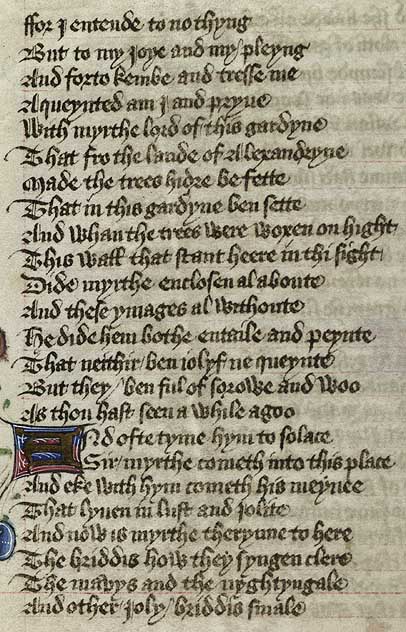 ffor I entende to no thyng
But to my Joye and my pleyng
And forto kembe and tresse me
Aqueynted am I and pryue
With myrthe lord of this gardyne
That fro the lande of Alexandryne
Made the trees hidre be fette
That in this gardyne ben sette
And whan the trees were woxen on hight
This wall that stant heere in thi sight
Dide myrthe enclosen al aboute
And these ymages al withoute
He dide hem bothe entaile and peynte
That neithir ben iolyf ne queynte
But they ben ful of sorowe and woo
As thou hast seen a while agoo
And ofte tyme hym to solace
Sir myrthe cometh into this place
And eke with hym cometh his meynee
That lyuen in lust and iolite
And now is myrthe therynne to here
The briddis how they syngen clere
The mavys and the nyghtyngale
And other ioly briddis smale